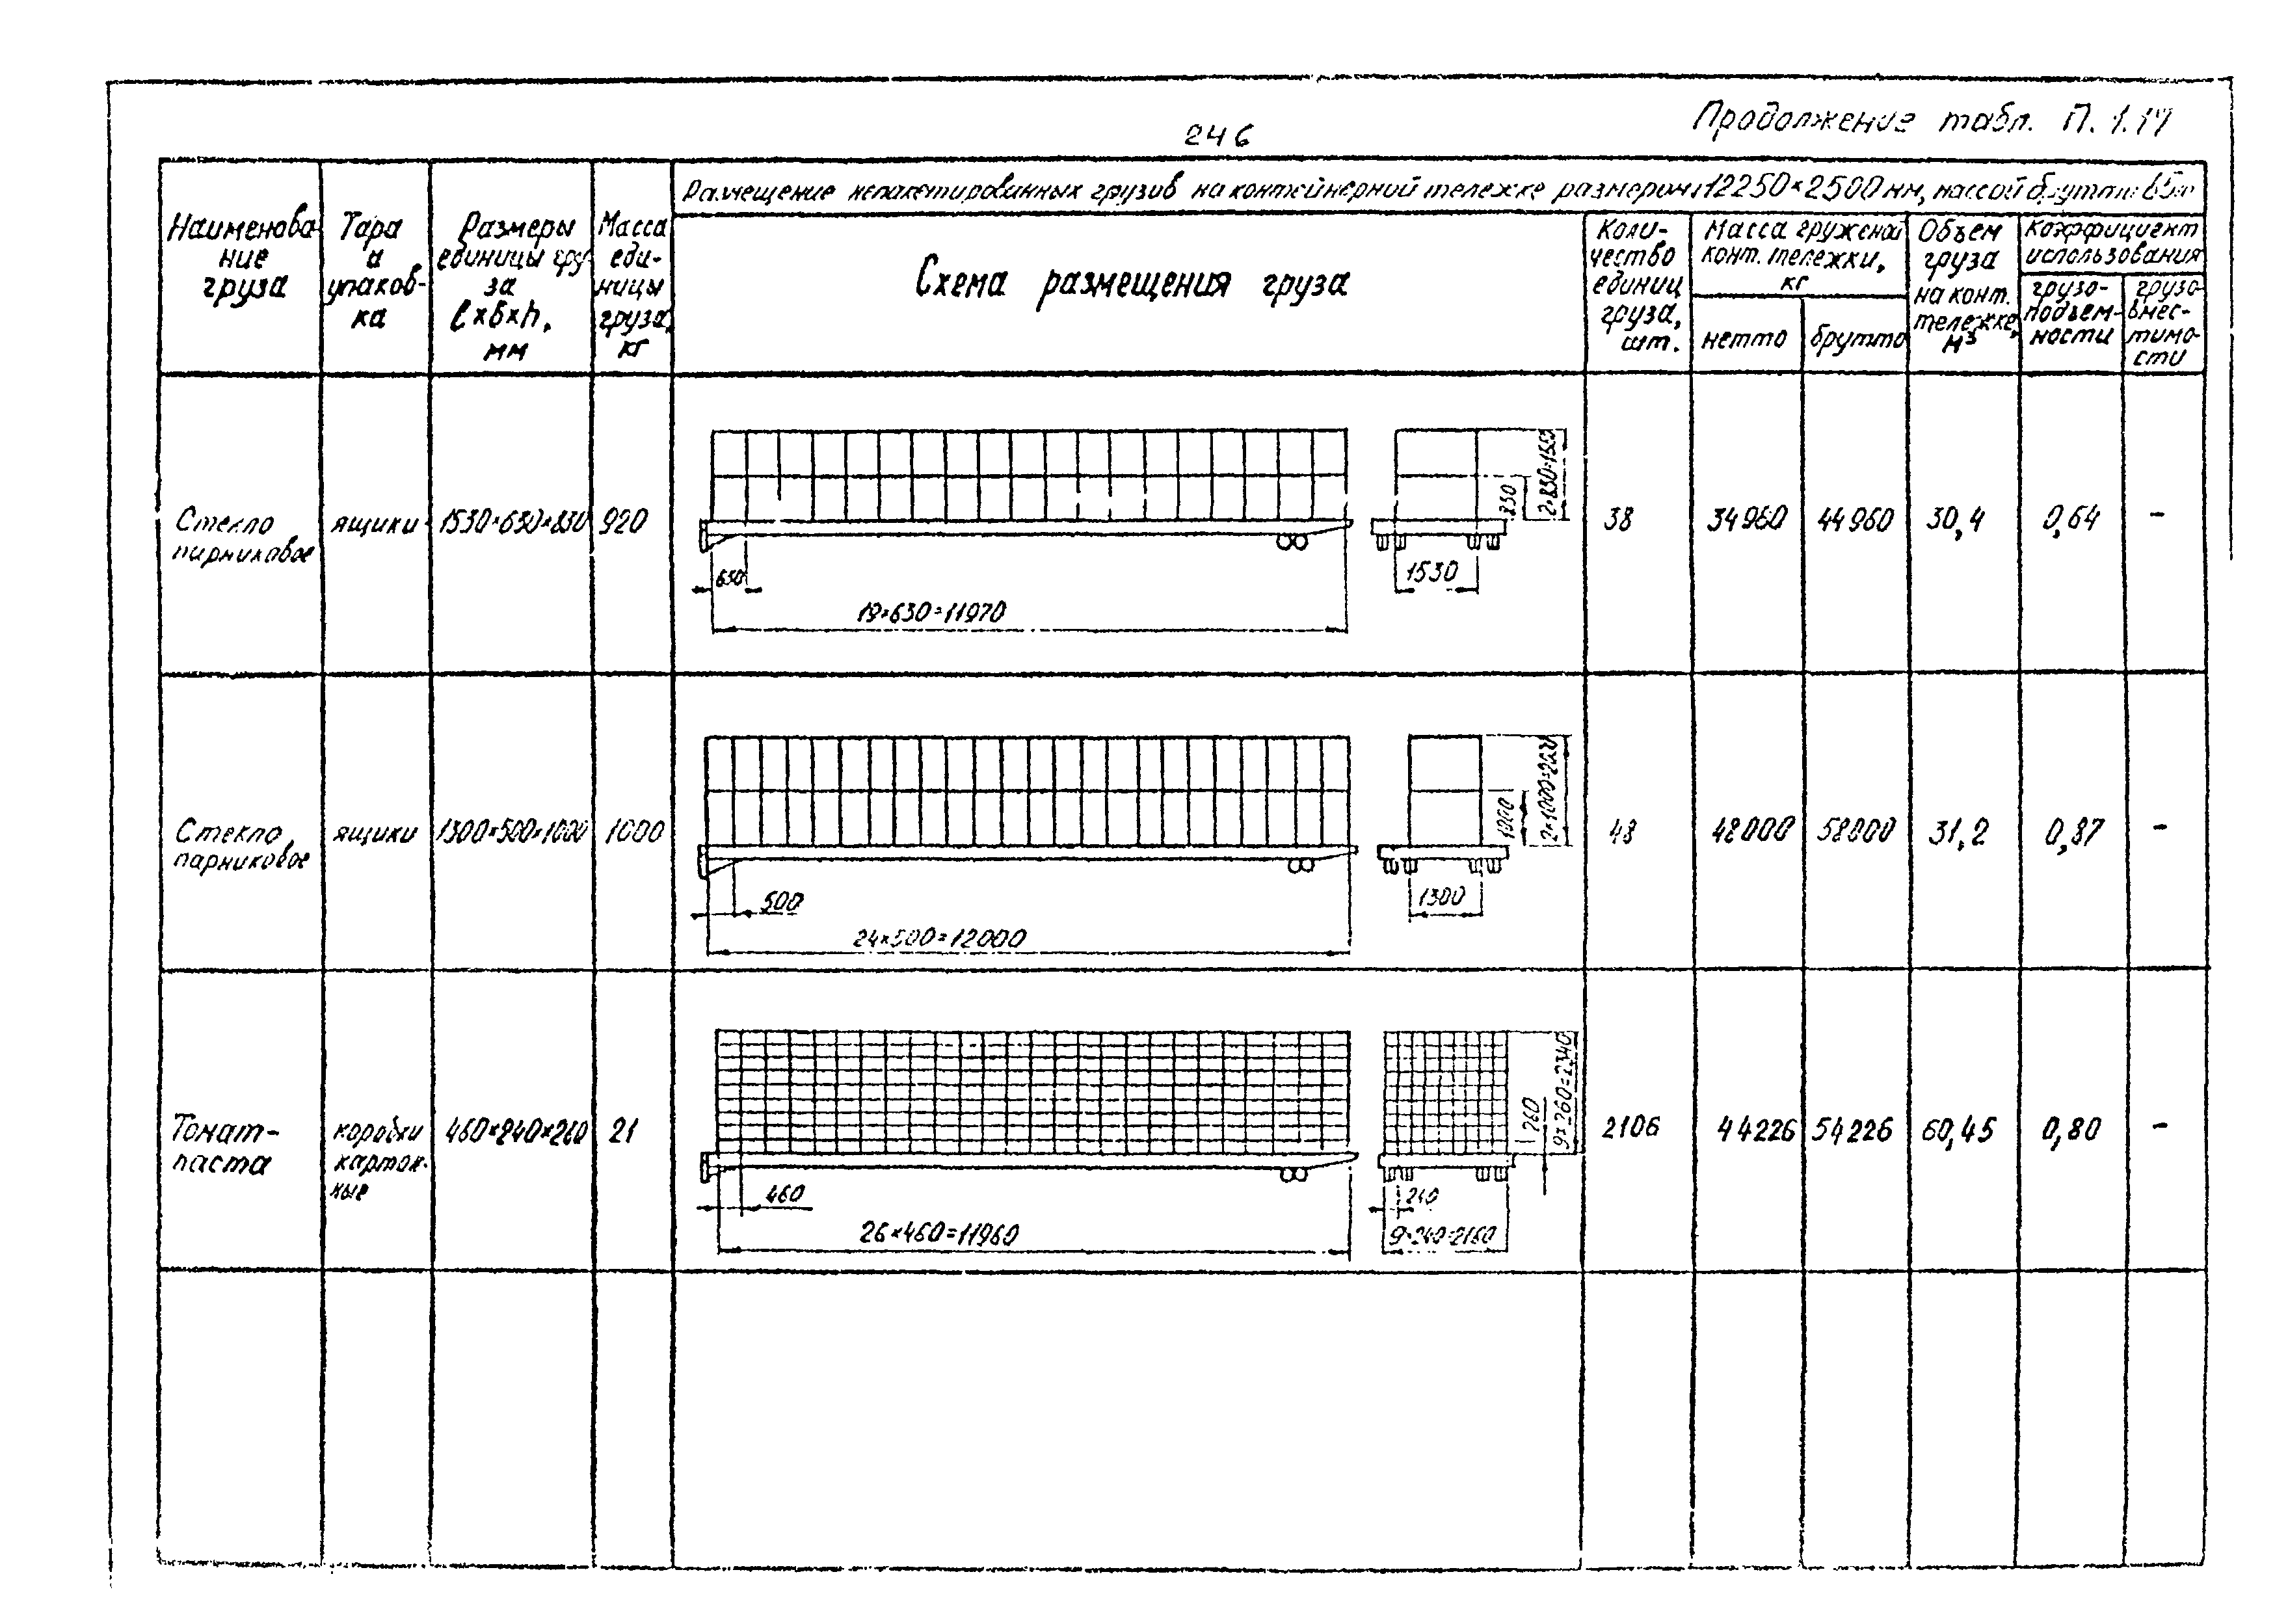 246
Продолжение табл. П.1.14
Наименова-
ние
груза
Тара
и
упаков-
ка
Размеры
единицы гру-
за
l×b×h,
мм
Масса
еди-
ницы
груза,
кг
Размещение непакетированных грузов на контейнерной тележке размером 12250×2500 мм, массой брутто 65т
Схема размещения груза
Коли-
чество
единиц
груза,
шт.
Масса груженой
конт. тележки,
кг
нетто
брутто
Объем
груза
на конт.
тележке,
м³
Коэффициент
использования
грузо-
подъем-
ности
грузо-
вмес-
тимо-
сти
Стекло
парниковое
ящики
1530×630×830
920
630
19×630=11970
1530
830
2×830=1660
38
34960
44960
30,4
0,64
-
Стекло,
парниковое
ящики
1300×500×1000
1000
500
24×500=12000
1300
1000
2×1000=2000
48
48000
58000
31,2
0,87
-
Томат-
паста
коробки
картон-
ные
460×240×260
21
460
26×460=11960
240
9×240=2160
260
9×260=2340
2106
44226
54226
60,45
0,80
-